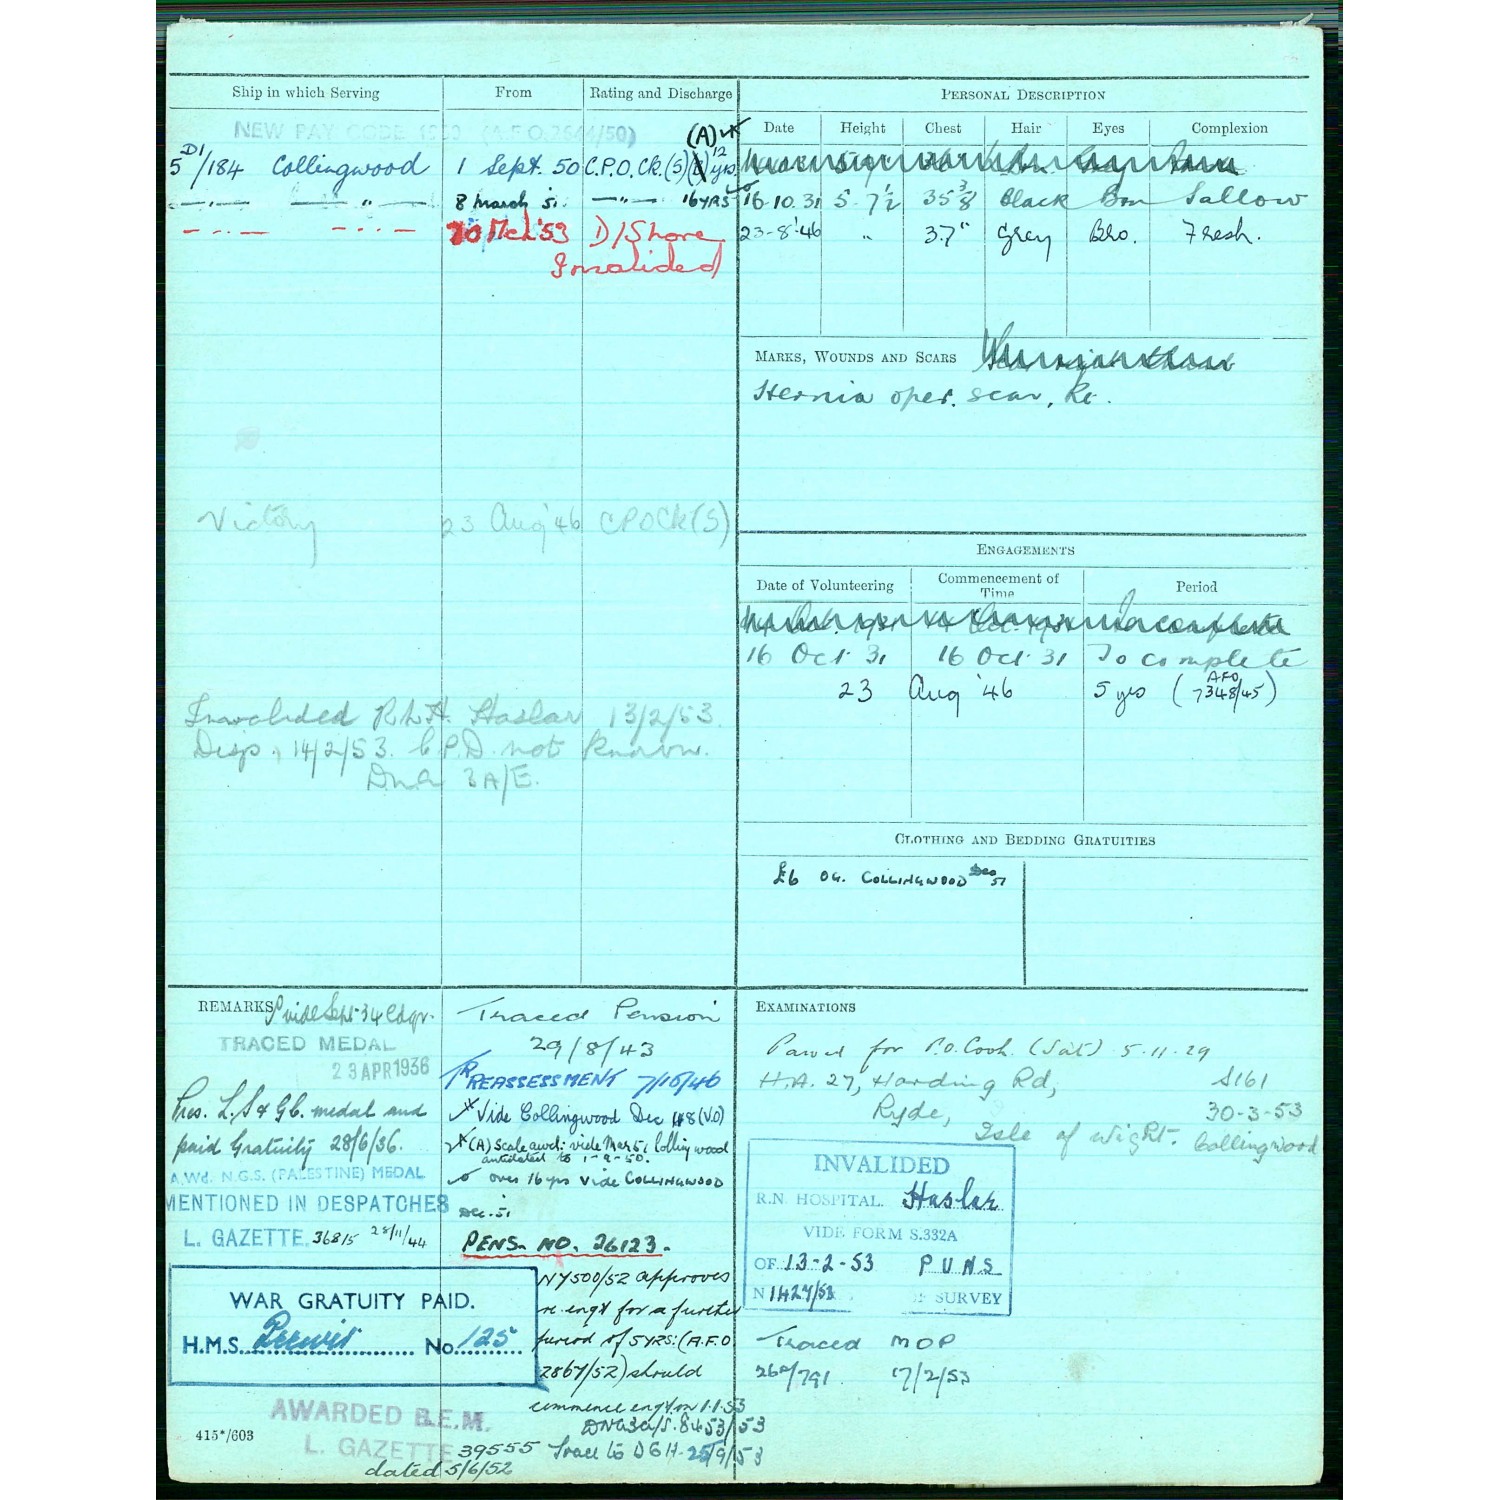 Ship in which Serving From Rating and Discharge
NEW PAY CODE 1950 (A.F.O. 2644/50)
(A)
12
5 D1/184 Collingwood 1 Sept. 50 C.P.O. Ck. (S) yrs.
—"— —"— 8 March 51. —"— 16 YRS
—..— —..— 20 Mch '53 D/Shore
Invalided
Victory 23 Aug '46 CPOCk(S)
Invalided R.N.H. Haslar 13/2/53.
Disp. 14/2/53. C.P.D. not known.
3A/E.
PERSONAL DESCRIPTION
Date Height Chest Hair Eyes Complexion
16-10.31 5 7½ 35 3/8 Black Brn Sallow
23-8-'46 " 37" Grey Bro. Fresh.
MARKS, WOUNDS AND SCARS
Hernia oper. scar, Rt.
ENGAGEMENTS
Date of Volunteering Commencement of Time Period
16 Oct 31 16 Oct 31 To complete
23 Aug '46 5 yrs (AFO 7348/45)
CLOTHING AND BEDDING GRATUITIES
£6 OG. COLLINGWOOD Dec 51
REMARKS vide Sept 34 Ldgr.
TRACED MEDAL
23 APR 1936
Pres. L.S & G.C. medal and
paid Gratuity 28/6/36.
A.Wd. N.G.S. (PALESTINE) MEDAL
MENTIONED IN DESPATCHES
L. GAZETTE 36815 28/11/44
WAR GRATUITY PAID.
H.M.S. Peewit No. 125
AWARDED B.E.M.
L. GAZETTE 39555
dated 5/6/52
415*/603
Traced Pension
29/8/43
REASSESSMENT 7/10/46
Vide Collingwood Dec 48 (V.O)
(A) Scale awd: vide Mar 51 Collingwood
antedated to 1-9-50.
over 16 yrs vide COLLINGWOOD
DEC. 51
PENS. NO. 26123.
NY500/52 approves
re. engt for a further
period of 5 YRS: (A.F.O
2867/52) should
commence engt on 1.1.53
DNA3A/S.8453/53
Trace to DGH. 25/9/53
EXAMINATIONS
Passed for P.O. Cook (Sat) 5.11.29
H.A. 27, Harding Rd, S161
Ryde, 30-3-53
Isle of Wight. Collingwood
INVALIDED
R.N. HOSPITAL. Haslar
VIDE FORM S.332A
OF 13-2-53 P.U.N.S
N 1427/53 OF SURVEY
Traced MOP
/791 17/2/53